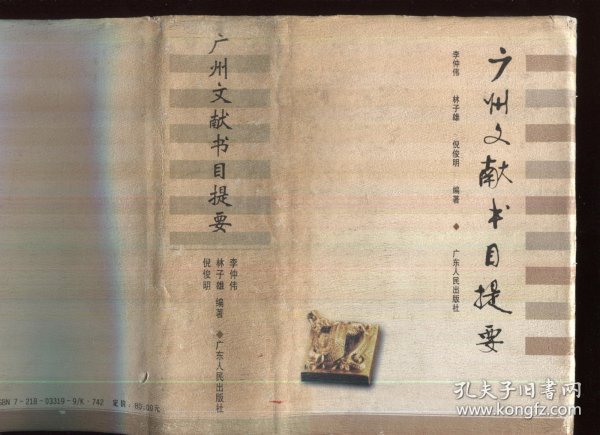 广州文献书目提要
李仲伟 林子雄 倪俊明 编著 ◆ 广东人民出版社
广州文献书目提要
李仲伟
林子雄 编著 ◆ 广东人民出版社
倪俊明
SBN 7-218-03319-9/K·742 定价:85.00元
孔夫子旧书网
www.kongfz.com